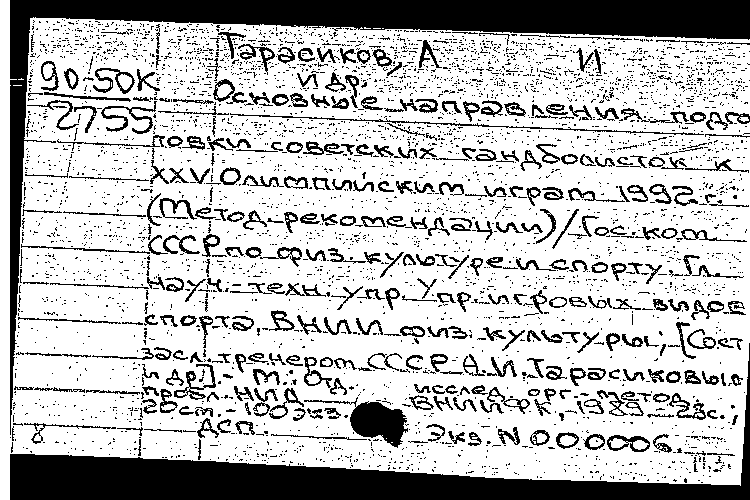 Тарасиков, А И
90-50К и др.
Основные направления подго
2755
товки советских гандболисток к
XXV Олимпийским играм 1992 г.
(Метод. рекомендации)/Гос. ком.
СССР по физ. культуре и спорту. Гл.
науч.-техн. упр. Упр. игровых видов
спорта, ВНИИ физ. культуры; [Сост
засл. тренером СССР А.И. Тарасиковым
и др.].- М.: Отд. исслед. орг.-метод.
пробл. НИД ВНИИФК, 1989.- 23с.;
20 см.- 100 экз.
ДСП. Экз. N 000006.
8